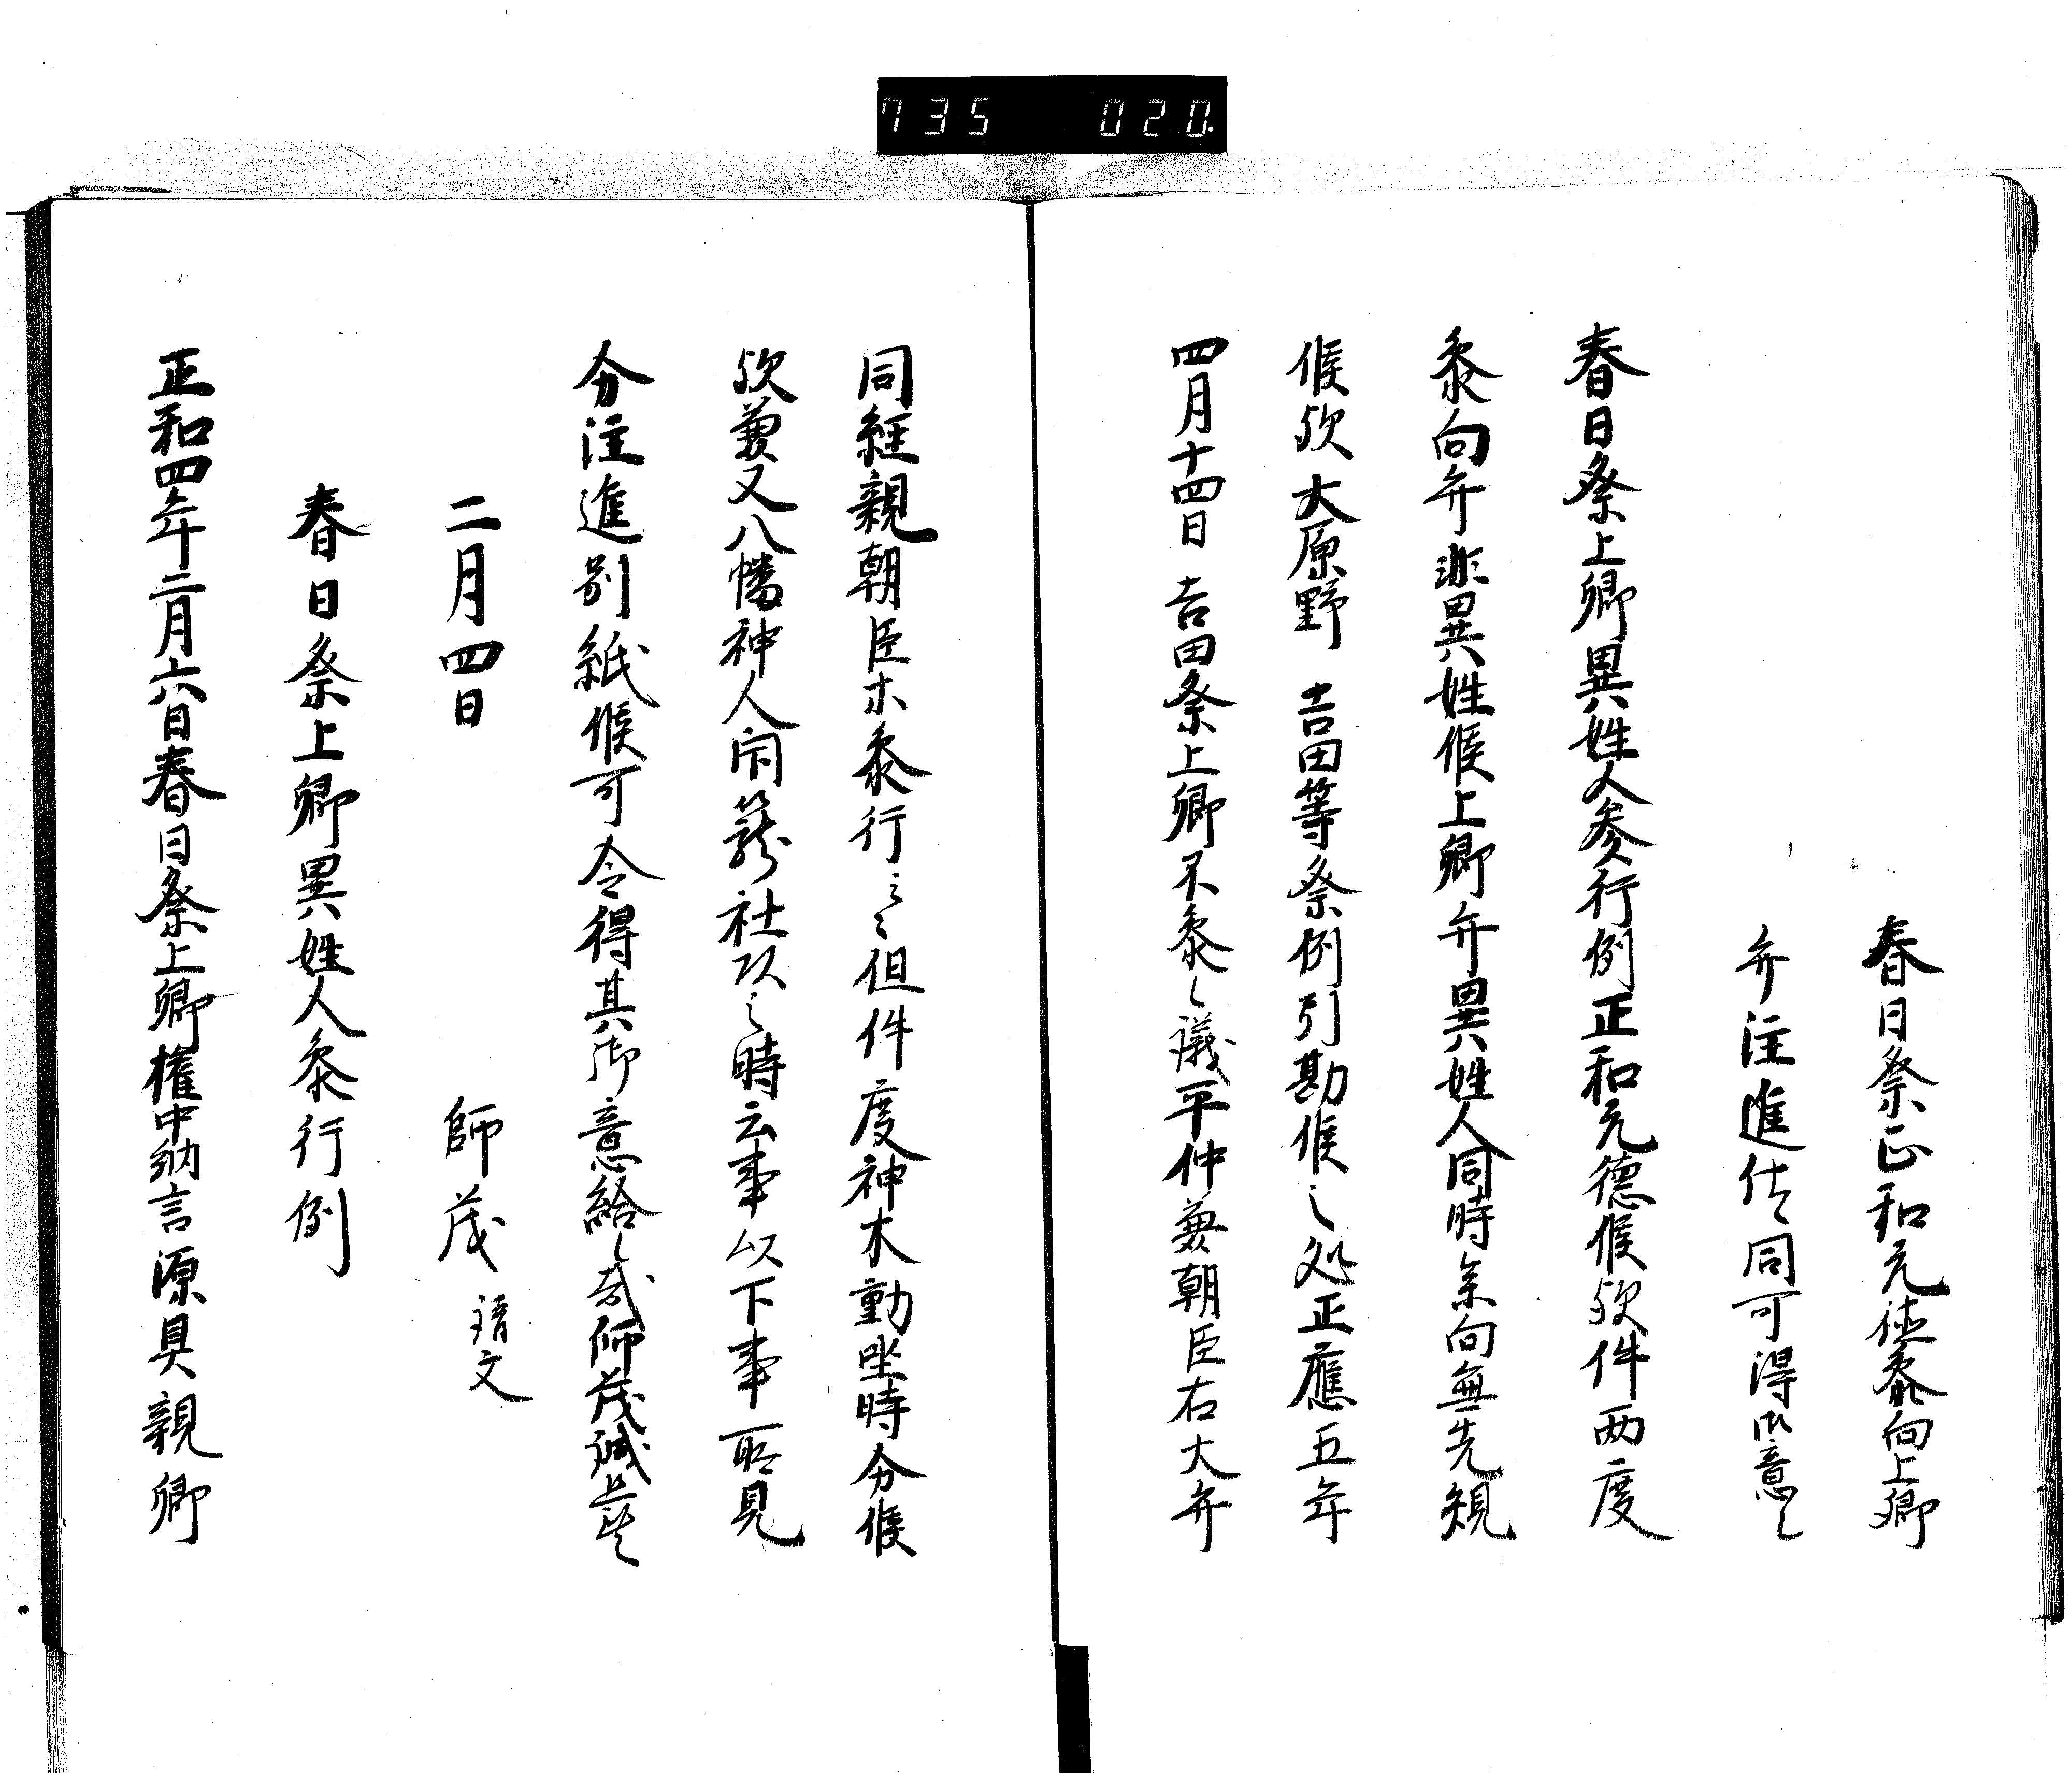 735 020
春日祭正和元徳参向上卿
弁注進仕同可得御意之
春日祭上卿異姓人参行例正和元徳候歟件両度
参向弁非異姓候上卿弁異姓人同時参向無先規
候歟大原野吉田等祭例引勘候之処正應五年
四月十四日吉田祭上卿不参之議平仲兼朝臣右大弁
同経親朝臣等参行云々但件度神木動坐時分候
歟兼又八幡神人閇籠社以之時云事以下事所見
分注進別紙候可令得其御意給
二月四日 師茂請文
春日祭上卿異姓人参行例
正和四年二月六日春日祭上卿権中納言源具親卿